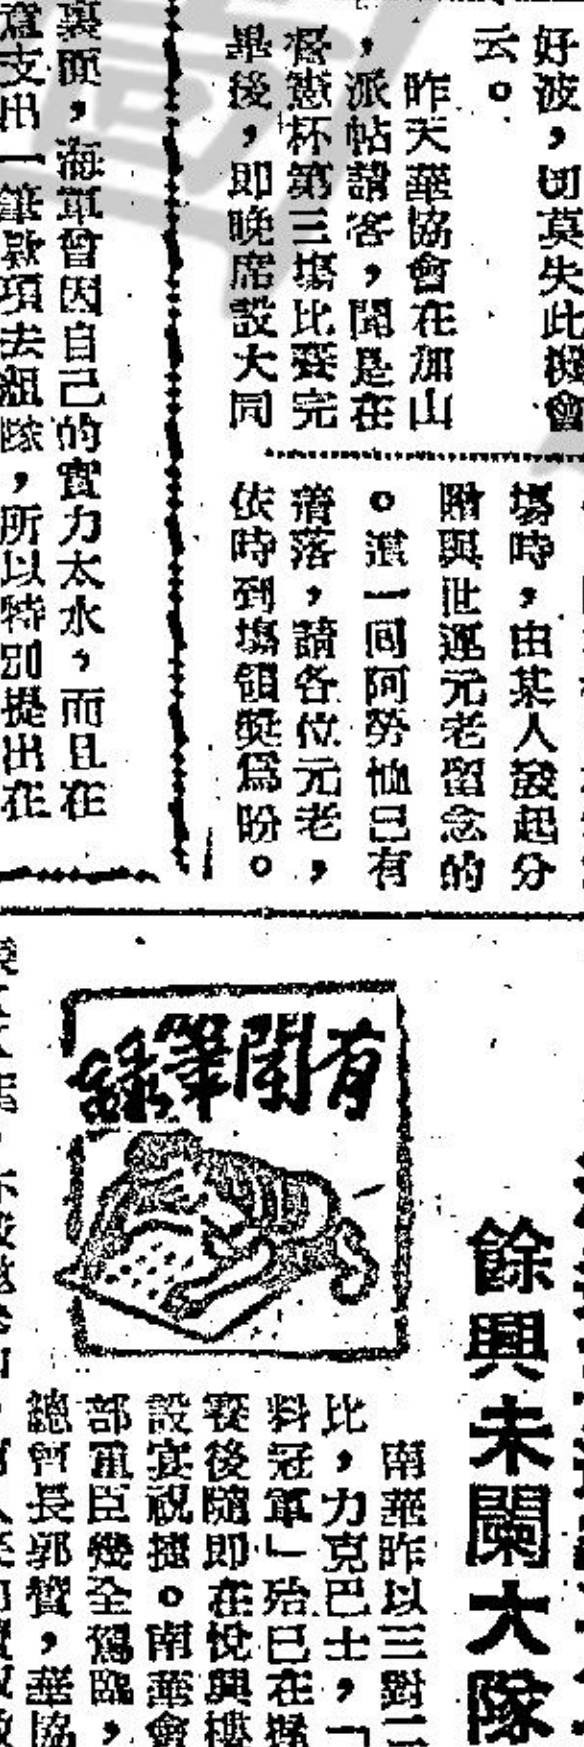 好波，切莫失此機會
云。
昨天華協會在加山
，派帖請客，聞是在
督憲杯第三塲比賽完
畢後，即晚席設大同
塲時，由某人發起分
贈與世運元老留念的
。這一回阿勞恤已有
着落，請各位元老，
依時到塲領獎爲盼。
裏面，海軍曾因自己的實力太水，而且在
意支出一筆欵項去組隊，所以特別提出在
有閒筆錄
餘興未闌大隊
南華昨以三對二
比，力克巴士，「
料冠軍」殆已在握
賽後隨即在悅興樓
設宴祝捷。南華會
部重臣幾全駕臨，
總會長郭贊，華協